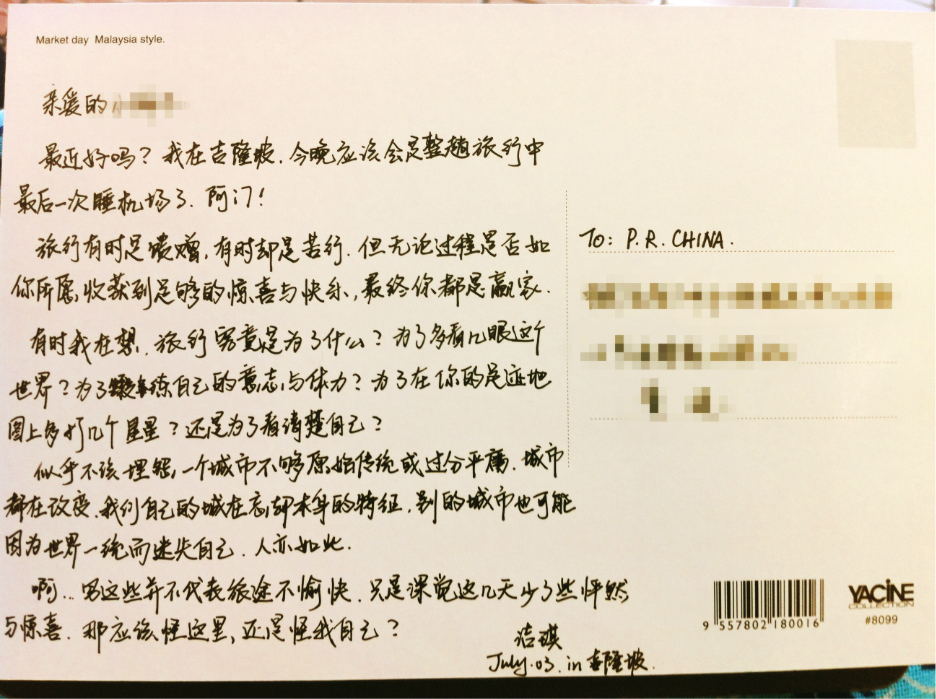 Market day Malaysia style.
亲爱的
最近好吗？我在吉隆坡.今晚应该会是整趟旅行中
最后一次睡机场了.阿门！
旅行有时是馈赠,有时却是苦行.但无论过程是否如
你所愿,收获到足够的惊喜与快乐,最终你都是赢家.
有时我在想.旅行究竟是为了什么？为了多看几眼这个
世界？为了锻练自己的意志与体力？为了在你的足迹地
图上多打几个星星？还是为了看清楚自己？
似乎不该埋怨,一个城市不够原始传统或过分平庸.城市
都在改变.我们自己的城在忘却本身的特征,别的城市也可能
因为世界一统而迷失自己.人亦如此.
啊...写这些并不代表旅途不愉快.只是深觉这几天少了些怦然
与惊喜.那应该怪这里,还是怪我自己？
洁琪
July.03.in吉隆坡.
To: P.R.CHINA.
9 557802 180016
YACINE
COLLECTION
#8099